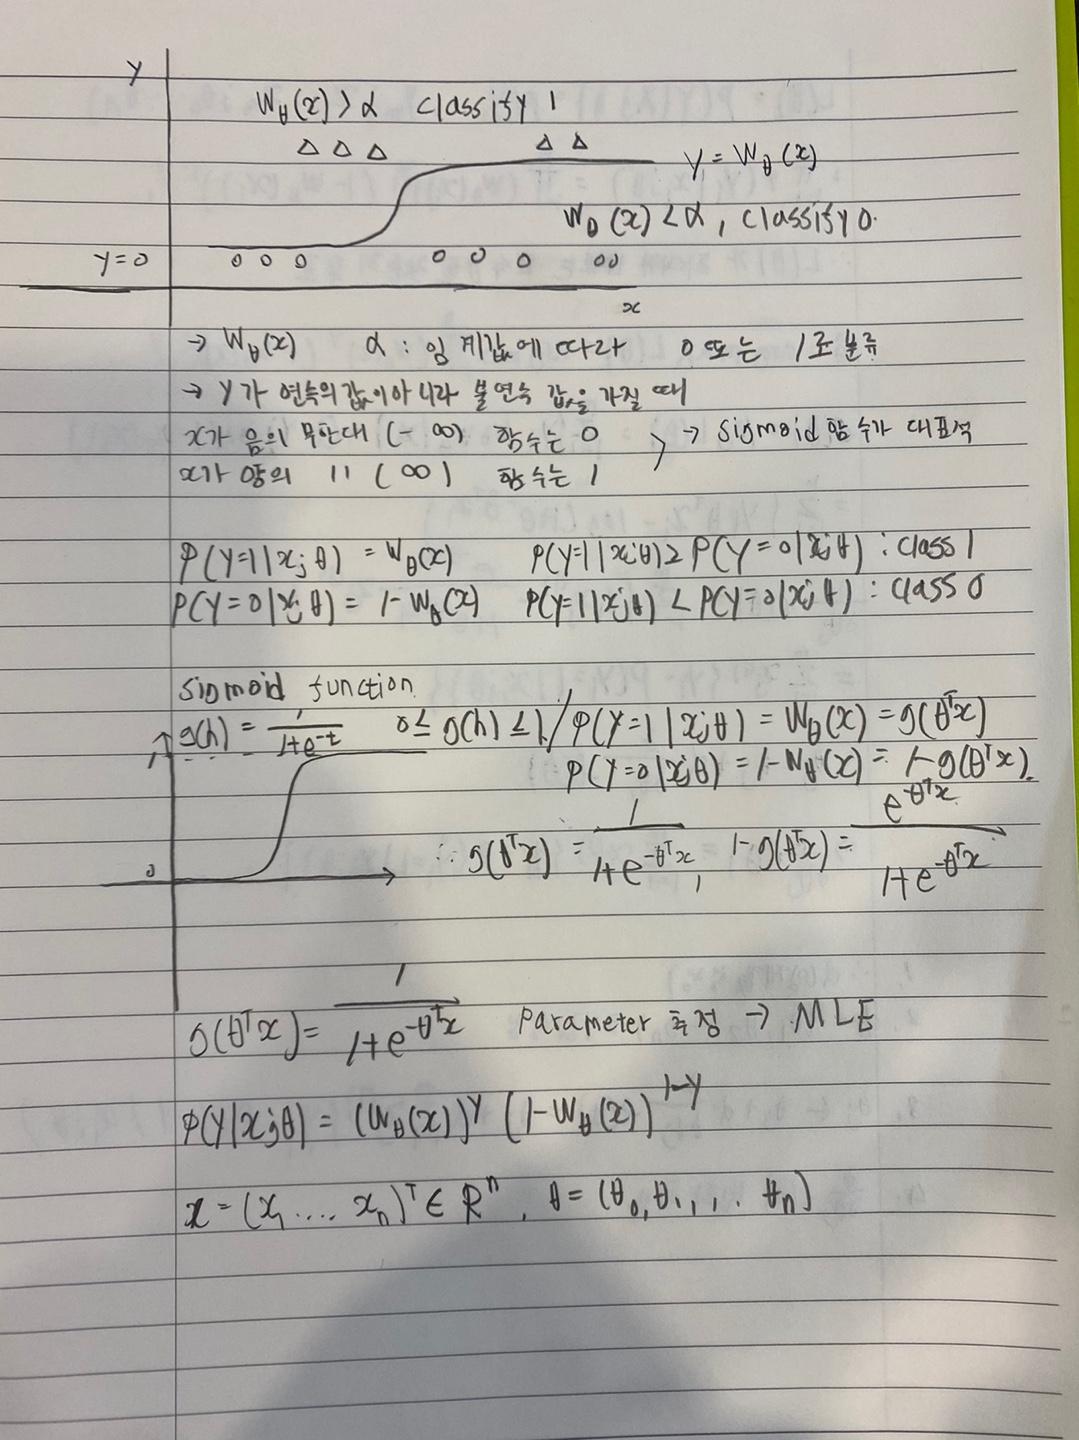 y
W_θ(x) > α classify 1
△ △ △ △ △
y = W_θ(x)
W_θ(x) < α, classify 0.
y=0 o o o o o o o o
x
→ W_θ(x) α : 임계값에 따라 0 또는 1로 분류
→ y가 연속의 값이 아니라 불연속 값을 가질 때
x가 음의 무한대 (-∞) 함수는 0
x가 양의 〃 (∞) 함수는 1
> → sigmoid 함수가 대표적
P(Y=1|x;θ) = W_θ(x) P(Y=1|x;θ) ≥ P(Y=0|x;θ) : class 1
P(Y=0|x;θ) = 1-W_θ(x) P(Y=1|x;θ) < P(Y=0|x;θ) : class 0
sigmoid function
g(h) = 1/(1+e^{-t}) 0 ≤ g(h) ≤ 1 / P(Y=1|x;θ) = W_θ(x) = g(θ^T x)
P(Y=0|x;θ) = 1-W_θ(x) = 1-g(θ^T x).
0
∴ g(θ^T x) = 1/(1+e^{-θ^T x}), 1-g(θ^T x) = e^{-θ^T x}/(1+e^{-θ^T x})
g(θ^T x) = 1/(1+e^{-θ^T x}) parameter 추정 → MLE
P(Y|x;θ) = (W_θ(x))^Y (1-W_θ(x))^{1-Y}
x = (x_1 .... x_n)^T ∈ R^n, θ = (θ_0, θ_1, , . θ_n)